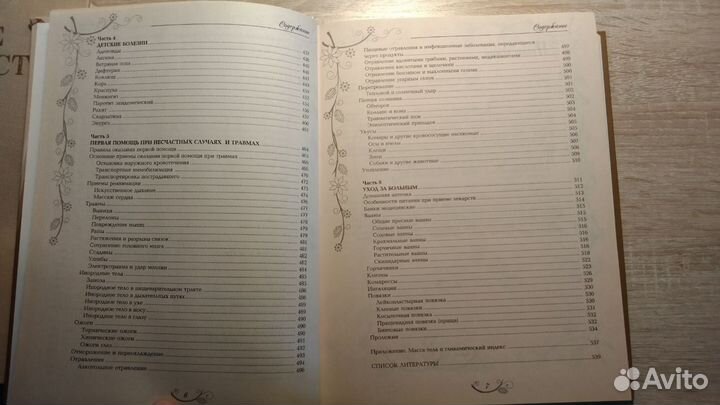 Содержание
Часть 4
ДЕТСКИЕ БОЛЕЗНИ
Аденоиды
Ангина
Ветряная оспа
Дифтерия
Коклюш
Корь
Краснуха
Менингит
Паротит эпидемический
Рахит
Скарлатина
Энурез
Часть 5
ПЕРВАЯ ПОМОЩЬ ПРИ НЕСЧАСТНЫХ СЛУЧАЯХ И ТРАВМАХ
Правила оказания первой помощи
Основные приемы оказания первой помощи при травмах
Остановка наружного кровотечения
Транспортная иммобилизация
Транспортировка пострадавшего
Приемы реанимации
Искусственное дыхание
Массаж сердца
Травмы
Вывихи
Переломы
Повреждение мышц
Раны
Растяжения и разрывы связок
Сотрясение головного мозга
Ссадины
Ушибы
Электротравма и удар молнии
Инородные тела
Заноза
Инородное тело в пищеварительном тракте
Инородное тело в дыхательных путях
Инородное тело в ухе
Инородное тело в носу
Инородное тело в глазу
Ожоги
Термические ожоги
Химические ожоги
Ожоги глаз
Отморожение и переохлаждение
Отравления
Алкогольное отравление 496
6
Содержание
Пищевые отравления и инфекционные заболевания, передающиеся
через продукты 497
Отравление ядовитыми грибами, растениями, медикаментами 498
Отравление кислотами и щелочами 500
Отравление бензином и выхлопными газами 500
Отравление угарным газом 500
Перегревание 501
Тепловой и солнечный удар 502
Потеря сознания 502
Обморок 503
Коллапс и кома 503
Травматический шок 504
Эпилептический припадок 505
Укусы
Комары и другие кровососущие насекомые
Осы и пчелы
Клещи
Змеи
Собаки и другие животные
Утопление
Часть 6
УХОД ЗА БОЛЬНЫМ 511
Домашняя аптечка 512
Особенности питания при приеме лекарств 513
Банки медицинские 514
Ванны 515
Общие пресные ванны
Солевые ванны
Содовые ванны
Крахмальные ванны
Горчичные ванны
Растительные ванны
Скипидарные ванны
Горчичники 523
Клизмы 526
Компрессы 529
Ингаляции 530
Повязки 530
Лейкопластырная повязка
Клеевая повязка
Косыночная повязка
Пращевидная повязка (праща) 532
Бинтовые повязки 532
Пролежни 534
Приложение. Масса тела и гликемический индекс 537
СПИСОК ЛИТЕРАТУРЫ 539
7
Avito